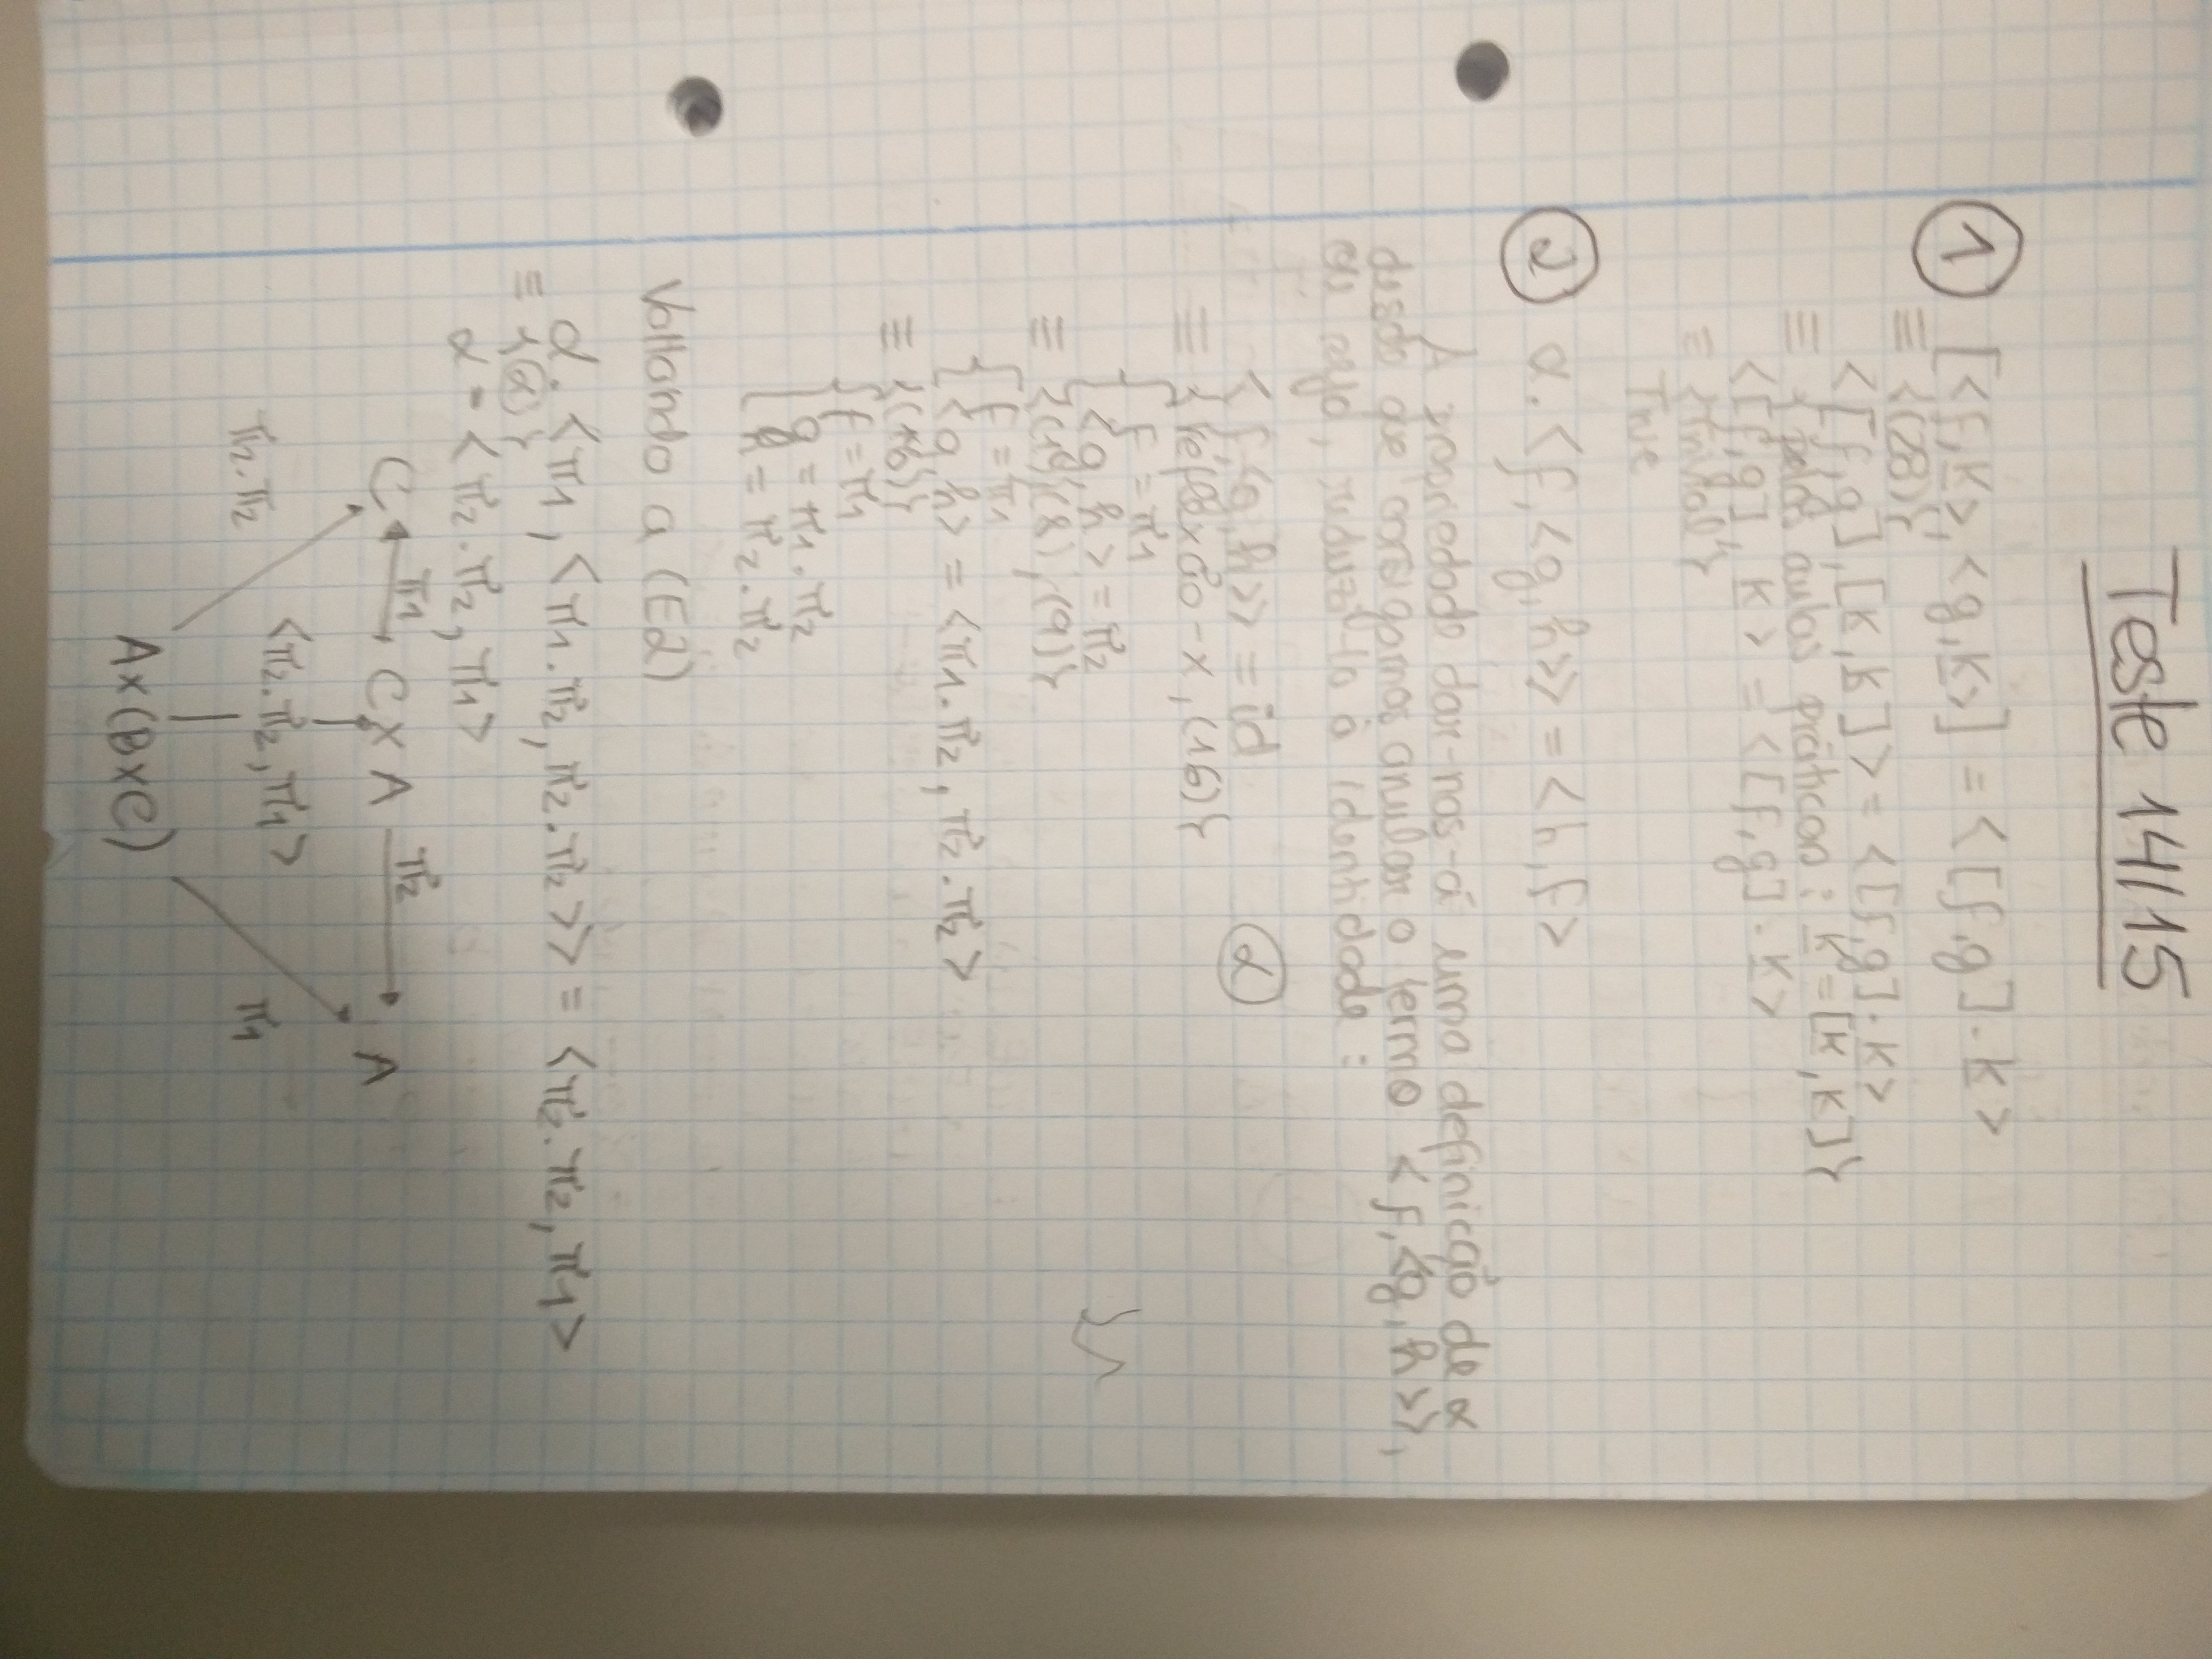 Teste 14/15
① [<f,K̲>,<g,K̲>] = <[f,g].K̲>
≡ {(28)}
<[f,g],[K̲,K̲]> = <[f,g].K̲>
≡ {pelas aulas práticas: K̲ = [K̲,K]}
<[f,g],K̲> = <[f,g].K̲>
≡ {Trivial}
True
② α.<f,<g,h>> = <h,f>
A propriedade dar-nos-á uma definicção de α
desde que consigamos anular o termo <f,<g,h>>,
ou seja, reduzi-lo à identidade:
<f,<g,h>> = id (α)
≡ {reflexão-x, (16)}
{ f = π1
{ <g,h> = π2
≡ { (8), (9)}
{ f = π1
{ <g,h> = <π1.π2, π2.π2>
≡ {(16)}
{ f = π1
{ g = π1.π2
{ h = π2.π2
Voltando a (E2)
α.<π1,<π1.π2,π2.π2>> = <π2.π2,π1>
≡ {(α)}
α = <π2.π2,π1>
π1 π2
C C x A A
<π2.π2,π1>
π2.π2 π1
A x (B x C)